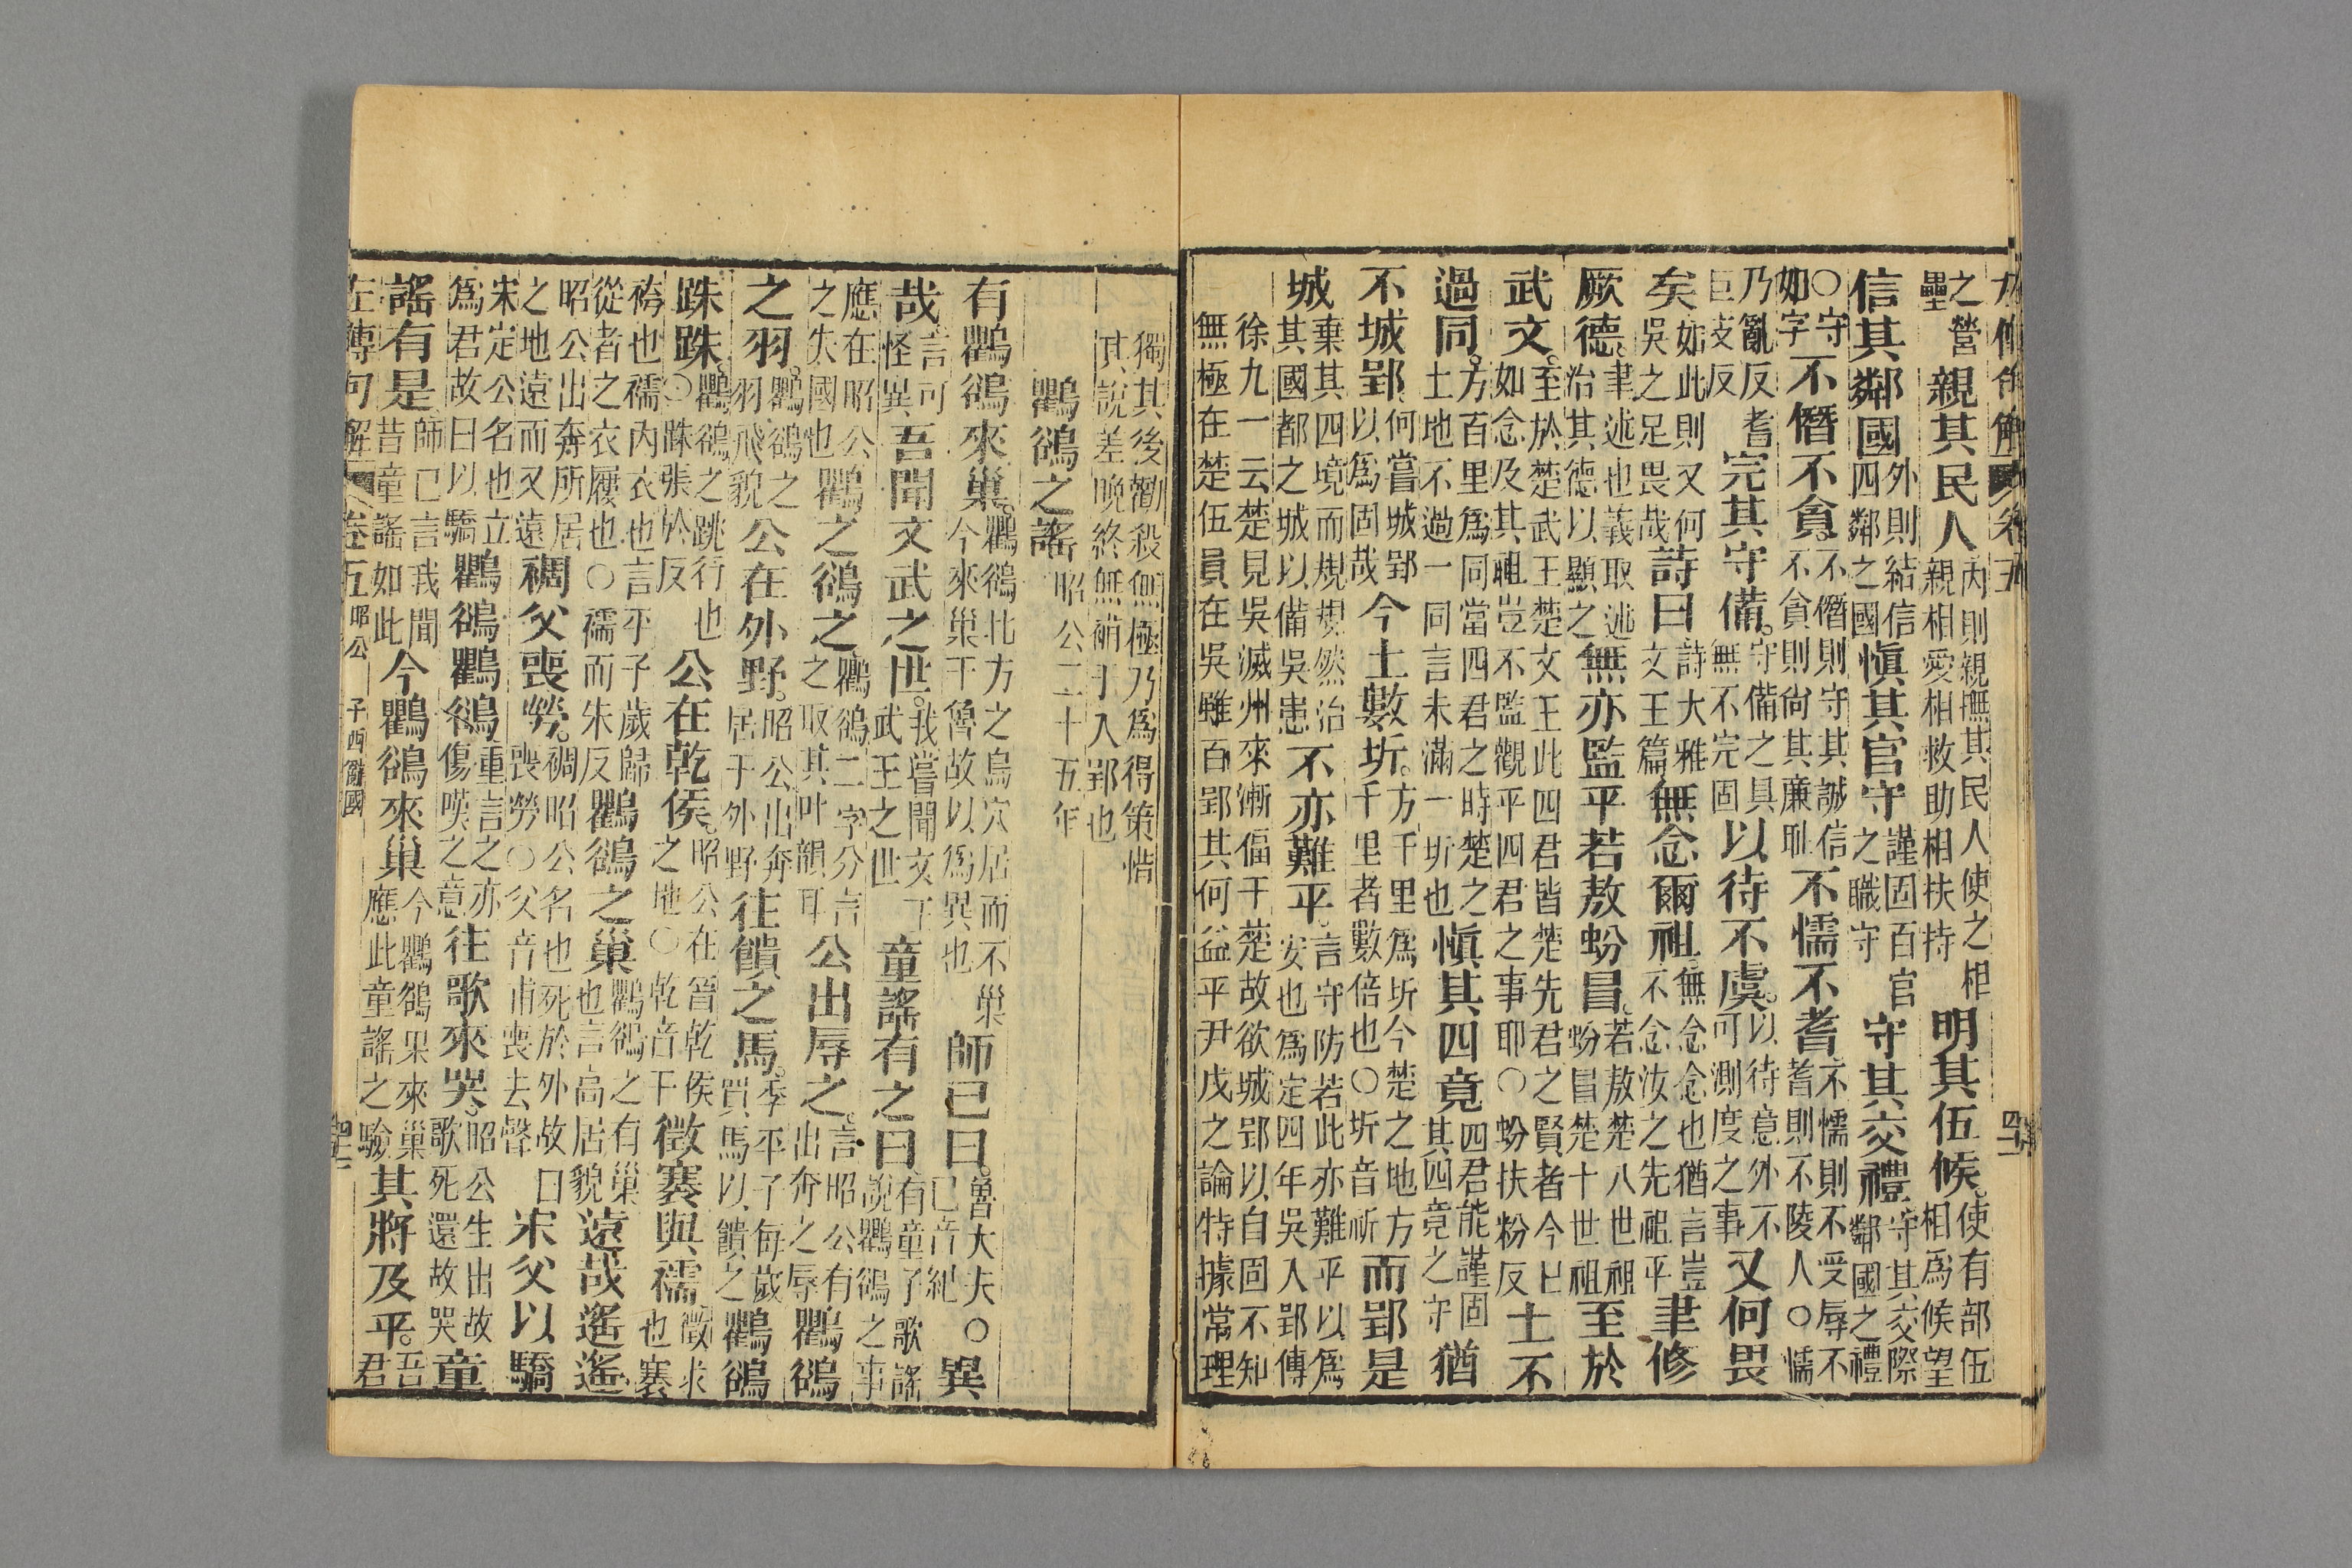 左傳句解 卷五 四十一
之營壘親其民人內則親撫其民人使之相親相愛相救助相扶持明其伍候。使有部伍相爲候望
信其鄰國外則結信四鄰之國愼其官守謹固百官之職守守其交禮。守其交際鄰國之禮
○守如字不僭不貪。不僭則守其誠信不貪則尙其廉耻不懦不耆不懦則不受辱不耆則不陵人○懦
乃亂反耆巨支反完其守備。守備之具無不完固以待不虞。以待意外不可測度之事又何畏
矣如此則又何吳之足畏哉詩曰詩大雅文王篇無念爾祖。無念念也猶言豈不念汝之先祖乎聿修
厥德。聿述也義取述治其德以顯之無亦監乎若敖蚡冒。若敖楚八世祖蚡冒楚十世祖至於
武文。至於楚武王楚文王此四君皆楚先君之賢者今如念及其祖豈不監觀乎四君之事耶○蚡扶粉反土不
過同。方百里爲同當四君之時楚之土地不過一同言未滿一圻也愼其四竟四君能謹固其四竟之守猶
不城郢。何嘗城郢以爲固哉今土數圻。方千里爲圻今楚之地方千里者數倍也○圻音祈而郢是
城棄其四境而規規然治其國都之城以備吳患不亦難乎。言守防若此亦難乎以爲安也爲定四年吳入郢傳
徐九一云楚見吳滅州來漸偪于楚故欲城郢以自固不知
無極在楚伍員在吳雖百郢其何益乎尹戌之論特據常理
獨其後勸殺無極乃爲得策惜
其說差晚終無補于入郢也
鸜鵒之謠昭公二十五年
有鸜鵒來巢。鸜鵒北方之鳥穴居而不巢今來巢于魯故以爲異也師已曰。魯大夫○已音紀異
哉。言可怪異吾聞文武之世。我嘗聞文王武王之世童謠有之曰有童子歌謠說鸜鵒之事
應在昭公之失國也鸜之鵒之鸜鵒二字分言之取其叶韻耳公出辱之。言昭公有出奔之辱鸜鵒
之羽。鸜鵒之羽飛貌公在外野。昭公出奔居于外野往饋之馬。季平子每歲買馬以饋之鸜鵒
跦跦。鸜鵒之跳行也○跦張於反公在乾侯。昭公在晉乾侯之地○乾音干徵褰與襦徵求也褰
袴也襦內衣也言平子歲歸從者之衣屨也○襦而朱反鸜鵒之巢鸜鵒之有巢也言高居貌遠哉遙遙
昭公出奔所居之地遠而又遠裯父喪勞。裯昭公名也死於外故曰喪勞○父音甫喪去聲宋父以驕
宋定公名也立爲君故曰以驕鸜鵒鸜鵒重言之亦傷嘆之意往歌來哭。昭公生出故歌死還故哭童
謠有是師已言我聞昔童謠如此今鸜鵒來巢今鸜鵒果來巢應此童謠之驗其將及乎。吾君
左傳句解 卷五 昭公 子西讎國 四十二